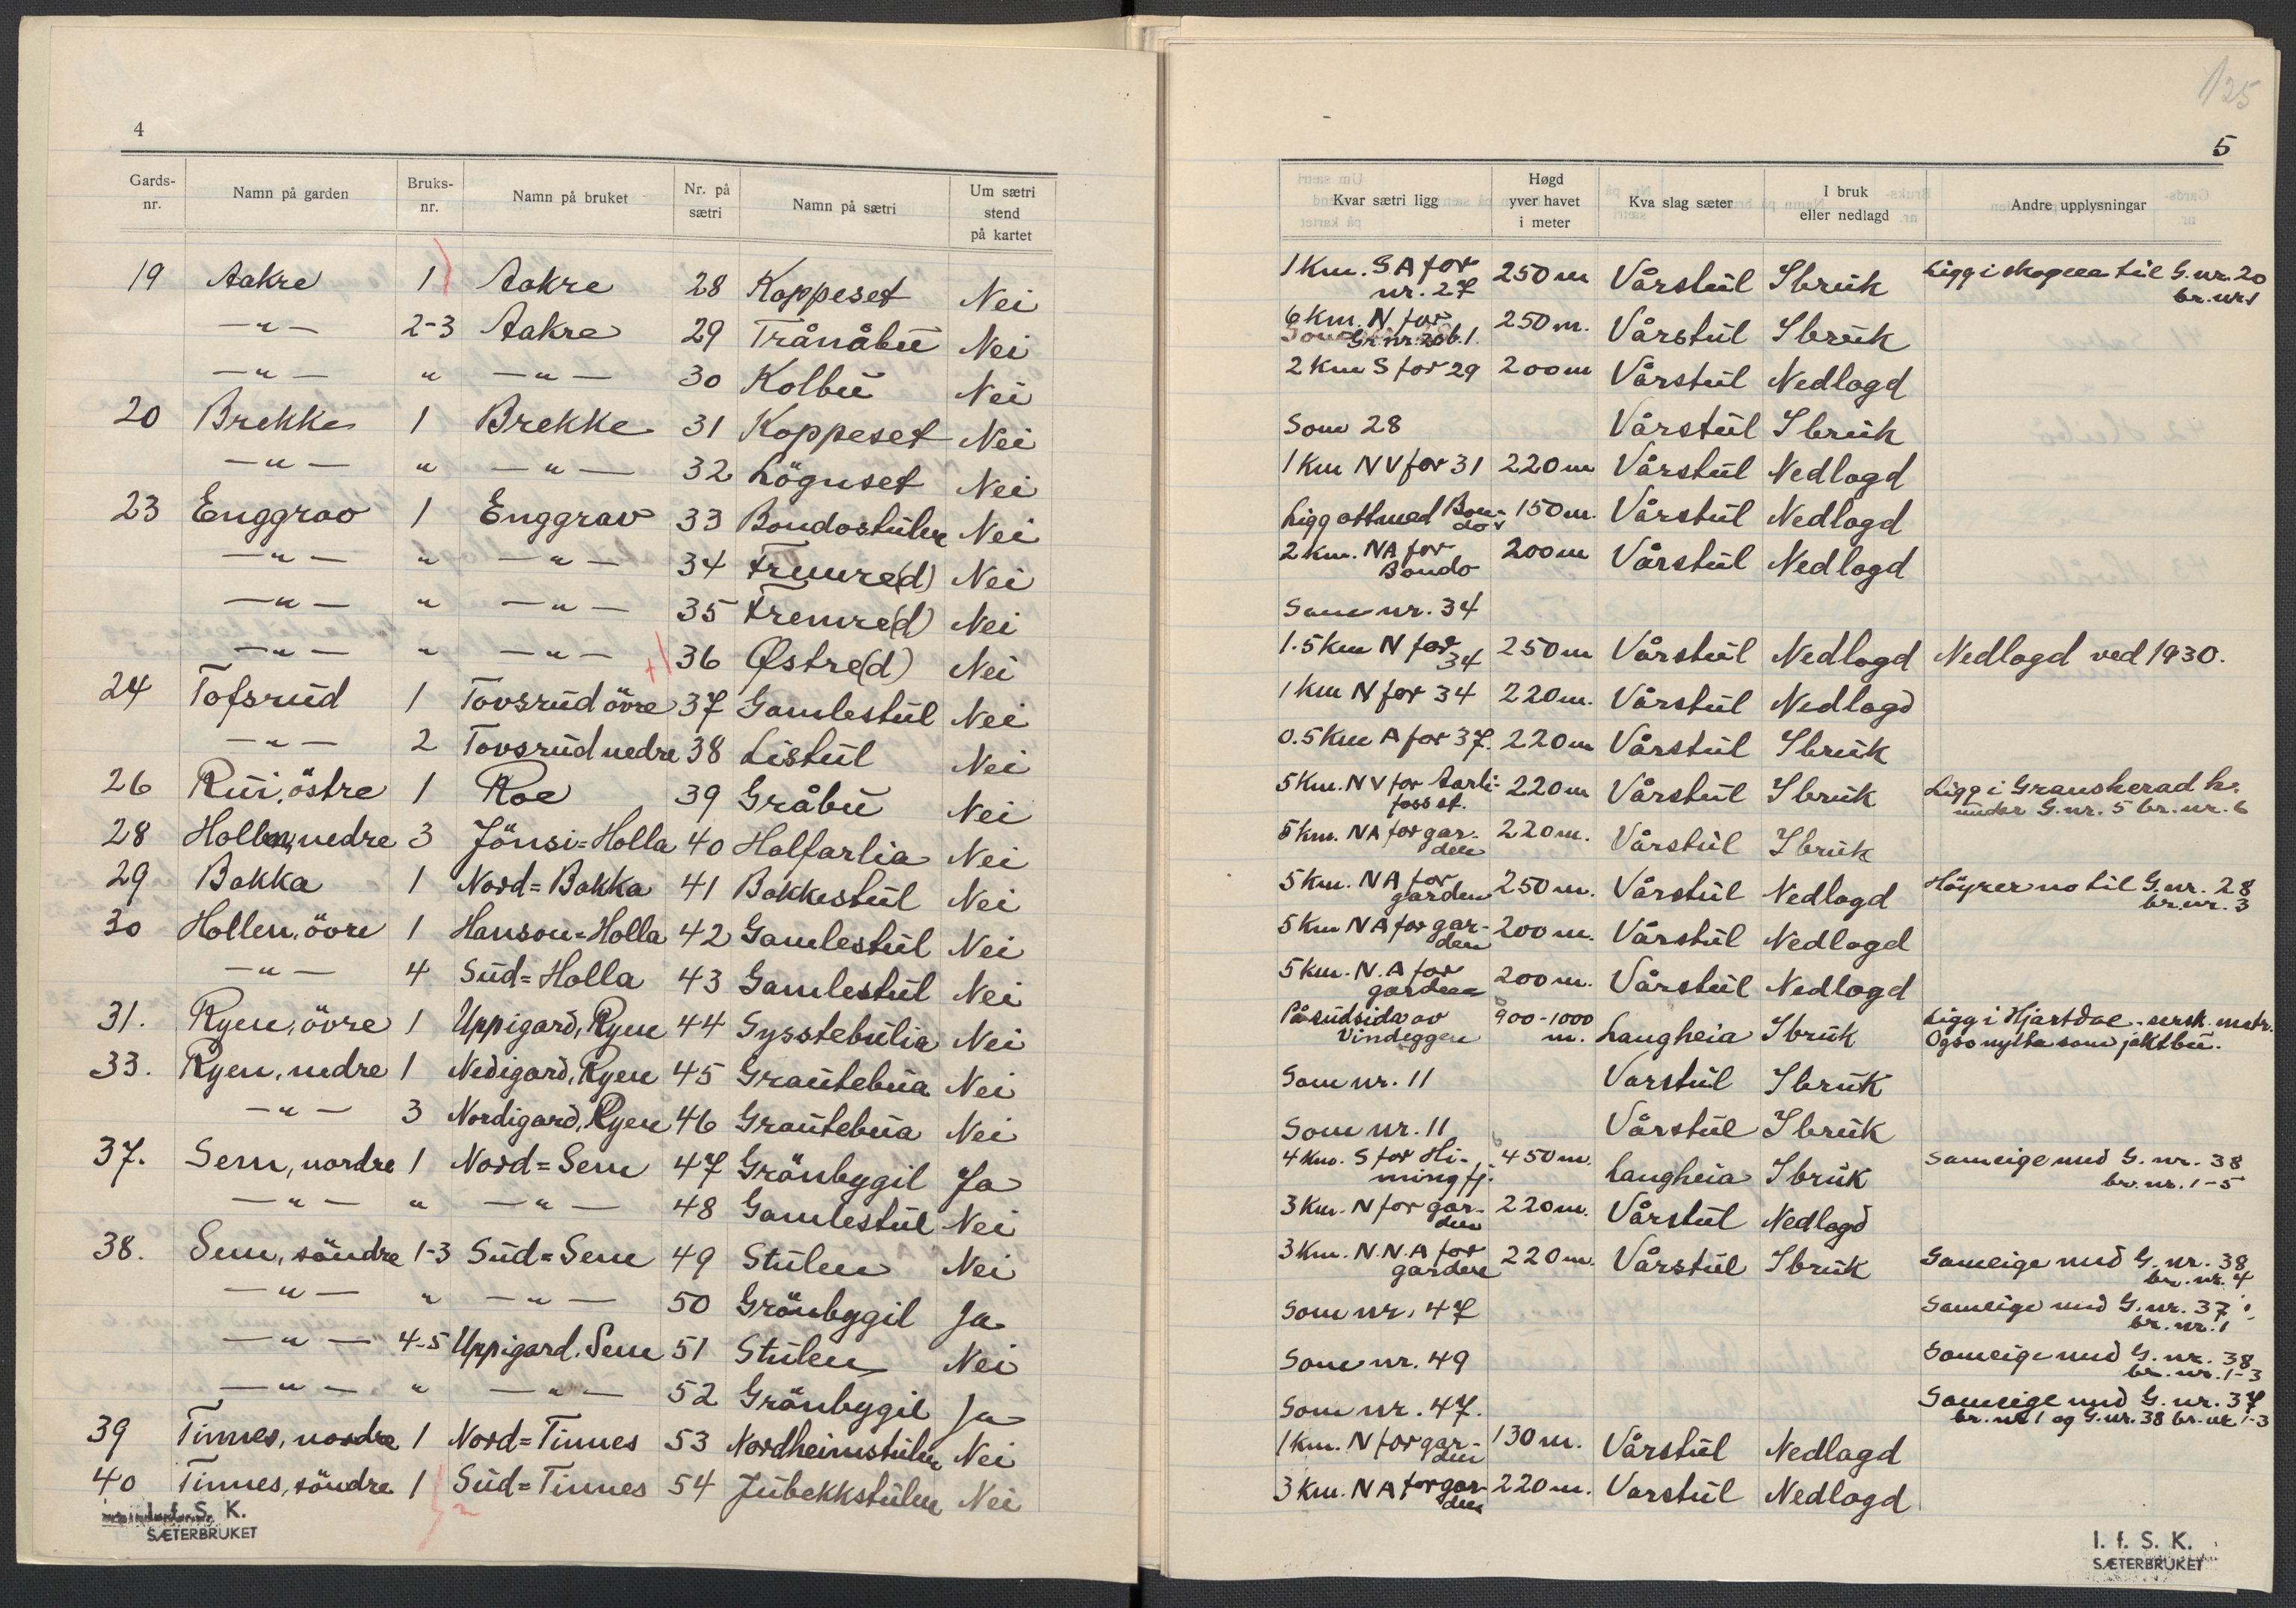 4
Gards-nr. Namn på garden Bruks-nr. Namn på bruket Nr. på sætri Namn på sætri Um sætri stend på kartet
19 Aakre 1 Aakre 28 Koppeset Nei
—"— 2-3 Aakre 29 Trånåbu Nei
—"— " —"— 30 Kolbu Nei
20 Brekke 1 Brekke 31 Koppeset Nei
—"— " —"— 32 Lögnset Nei
23 Enggrav 1 Enggrav 33 Bondostulen Nei
—"— " —"— 34 Fremre(d) Nei
—"— " —"— 35 Fremre(d) Nei
—"— " —"— 36 Østre(d) Nei
24 Tofsrud 1 Tovsrud övre 37 Gamlestul Nei
—"— 2 Tovsrud nedre 38 Listul Nei
26 Rui, östre 1 Roe 39 Gråbu Nei
28 Hollen, nedre 3 Jönsi=Holla 40 Holfarlia Nei
29 Bakka 1 Nord=Bakka 41 Bakkestul Nei
30 Hollen, övre 1 Hanson=Holla 42 Gamlestul Nei
—"— 4 Sud=Holla 43 Gamlestul Nei
31. Ryen, övre 1 Uppigard, Ryen 44 Gysstebulia Nei
33. Ryen, nedre 1 Nedigard, Ryen 45 Grautebua Nei
—"— 3 Nordigard, Ryen 46 Grautebua Nei
37. Sem, nordre 1 Nord=Sem 47 Grönbygil Ja
—"— " —"— 48 Gamlestul Nei
38. Sem, söndre 1-3 Sud=Sem 49 Stulen Nei
—"— " —"— 50 Grönbygil Ja
—"— 4-5 Uppigard. Sem 51 Stulen Nei
—"— " —"— 52 Grönbygil Ja
39 Tinnes, nordre 1 Nord=Tinnes 53 Nordheimstulen Nei
40 Tinnes, söndre 1 Sud=Tinnes 54 Jubekkstulen Nei
I. f. S. K.
SÆTERBRUKET
125
5
Kvar sætri ligg Høgd yver havet i meter Kva slag sæter I bruk eller nedlagd Andre upplysningar
1 Km. SA for nr. 27 250 m Vårstul Ibruk Ligg i skogen til G. nr. 20 br. nr 1
6 Km. N for Gr. nr. 20 b. 1. 250 m. Vårstul Ibruk
2 Km S for 29 200 m Vårstul Nedlagd
Som 28 Vårstul Ibruk
1 Km NV for 31 220 m Vårstul Nedlagd
Ligg attmed Bondo 150 m. Vårstul Nedlagd
2 Km. NA for Bondo 200 m Vårstul Nedlagd
Som nr. 34
1.5 Km N for 34 250 m Vårstul Nedlagd Nedlagd ved 1930.
1 Km N for 34 220 m. Vårstul Nedlagd
0.5 Km A for 37. 220 m Vårstul Ibruk
5 Km. NV for Aarlifoss st. 220 m Vårstul Ibruk Ligg i Gransherad h. under G. nr. 5 br. nr. 6
5 km. NA for garden 220 m. Vårstul Ibruk
5 Km. NA for garden 250 m. Vårstul Nedlagd Höyrer no til G. nr. 28 br. nr. 3
5 Km NA for garden 200 m. Vårstul Nedlagd
5 Km. N.A for garden 200 m. Vårstul Nedlagd
På sudsida av Vindeggen 900-1000 m. Langheia Ibruk Ligg i Hjartdal. sersk. matr. Ogso nytta som jaktbu.
Som nr. 11 Vårstul Ibruk
Som nr. 11 Vårstul Ibruk
4 Km. S for Himingfj. 450 m. Langheia Ibruk Sameige med G. nr. 38 br. nr. 1-5
3 Km. N for garden 220 m. Vårstul Nedlagd
3 Km. N.N.A for garden 220 m. Vårstul Ibruk Sameige med G. nr. 38 br. nr. 4
Som nr. 47 Sameige med G. nr. 37 br. nr. 1
Som nr. 49 Sameige med G. nr. 38 br. nr. 1-3
Som nr. 47. Sameige med G. nr. 37 br. nr 1 og G. nr. 38 br. nr 1-3
1 Km. N for garden 130 m. Vårstul Nedlagd
3 Km. NA for garden 220 m. Vårstul Nedlagd
I. f. S. K.
SÆTERBRUKET